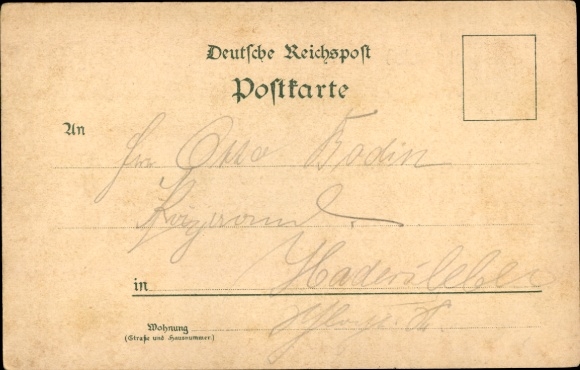 Deutsche Reichspost
Postkarte
An
Otto Bodin
in Hadersleben
Wohnung
(Straße und Hausnummer.)